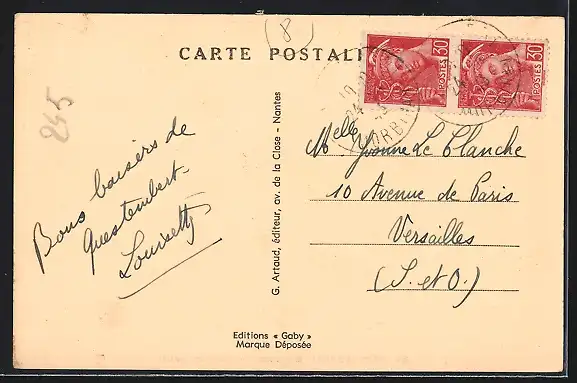 (8)
CARTE POSTALE
30
POSTES
30
POSTES
MORBIHAN
245
Bons baisers de
Questembert-
Louisette
G. Artaud, éditeur, av. de la Close - Nantes
Melle Yvonne Le Blanche
10 Avenue de Paris
Versailles
(S. et O.)
Editions « Gaby »
Marque Déposée